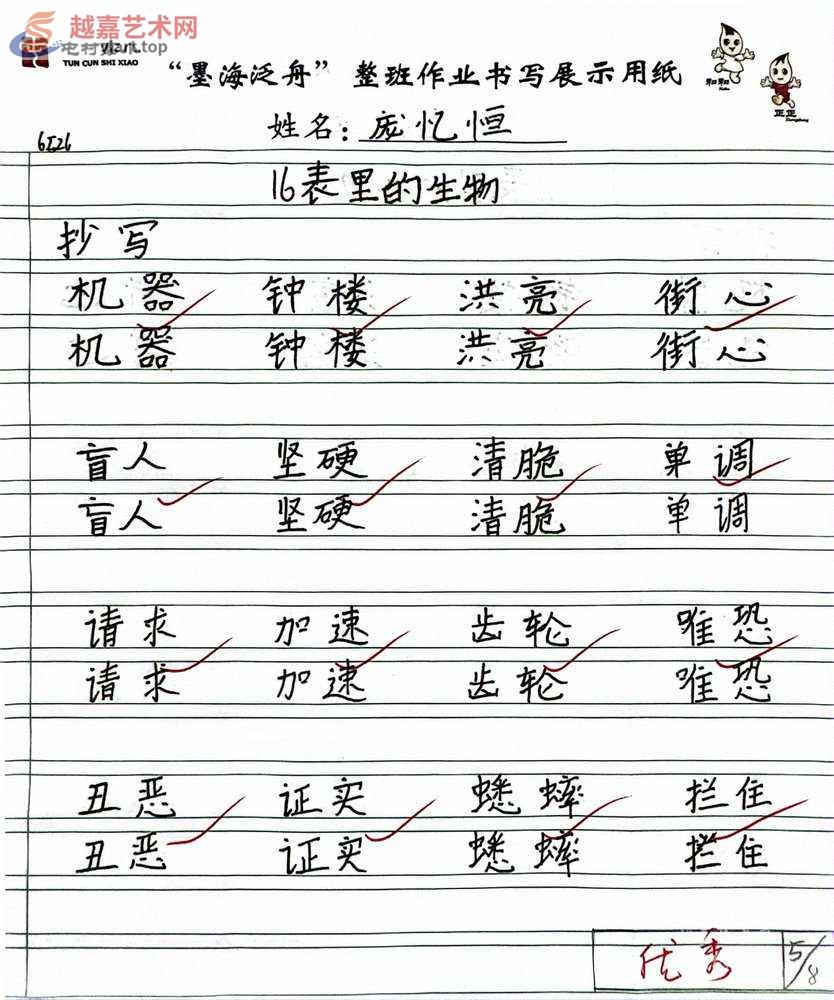 越嘉艺术网
yjart.top
TUN CUN SHI XIAO
“墨海泛舟”整班作业书写展示用纸
和和
正正
姓名：庞忆恒
6126
16表里的生物
抄写
机器 钟楼 洪亮 街心
机器 钟楼 洪亮 街心
盲人 坚硬 清脆 单调
盲人 坚硬 清脆 单调
请求 加速 齿轮 唯恐
请求 加速 齿轮 唯恐
丑恶 证实 蟋蟀 拦住
丑恶 证实 蟋蟀 拦住
优秀 5/8